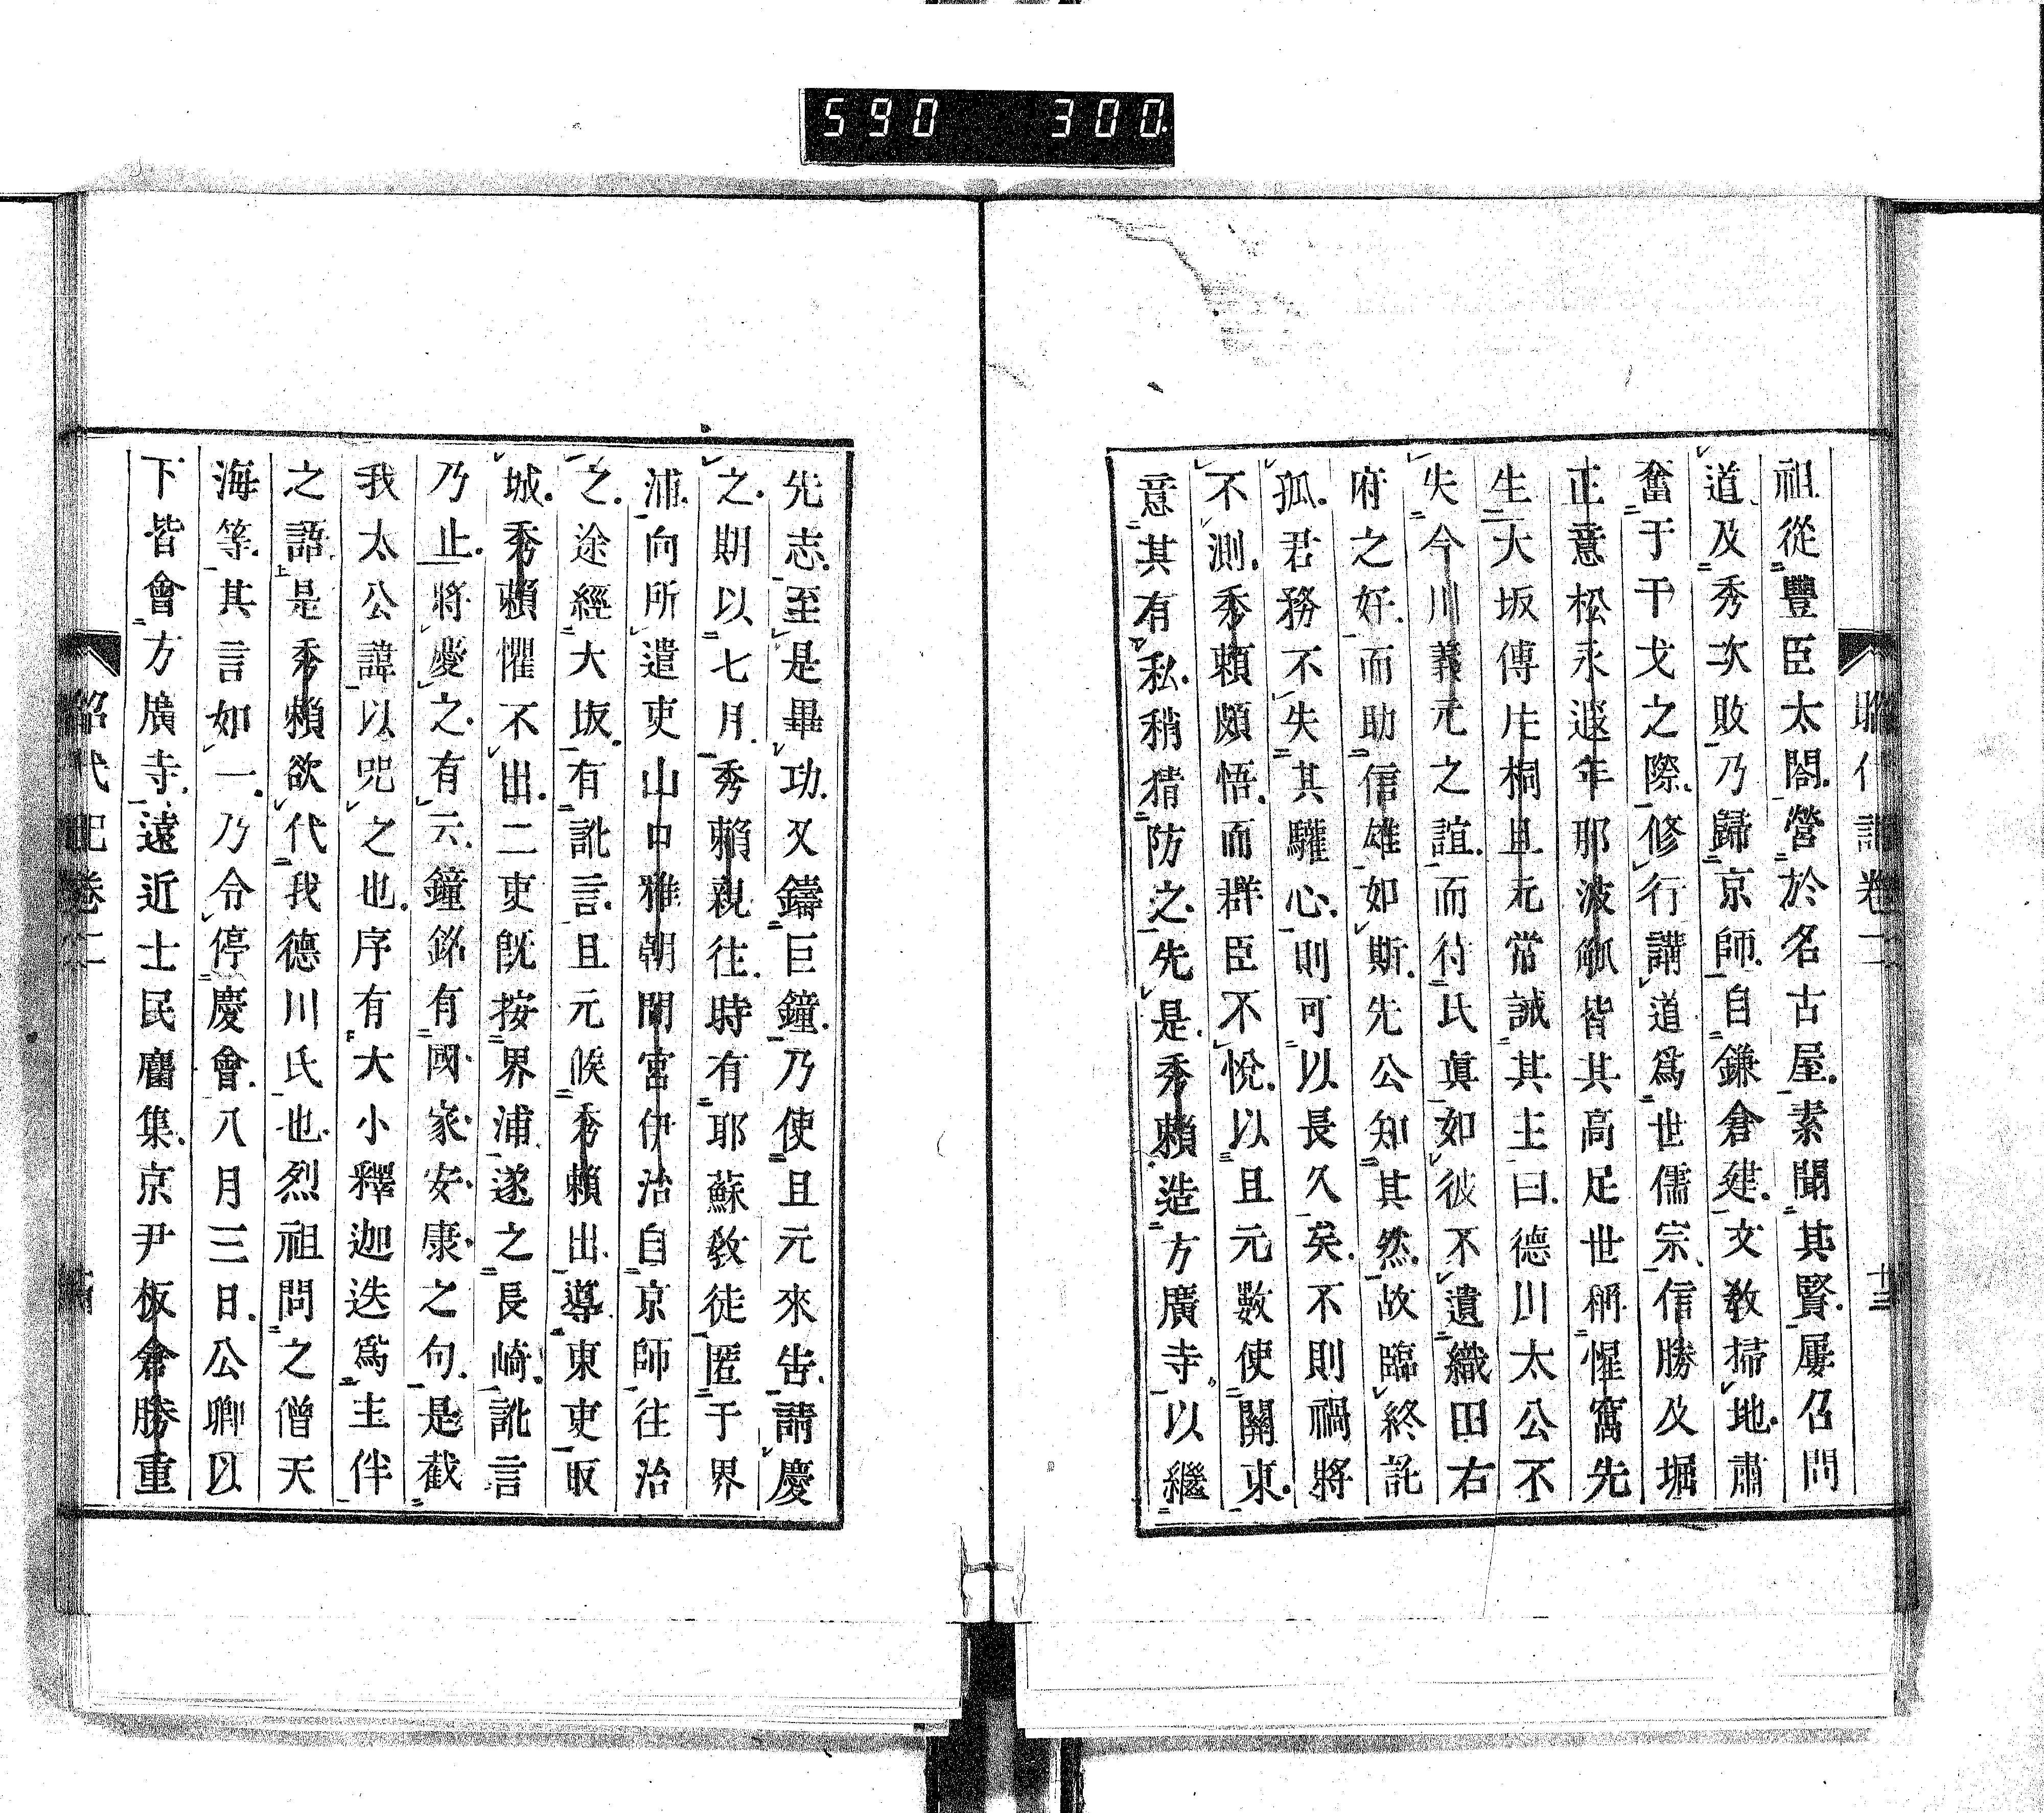 590 300.
昭代記卷二 十三
祖從豐臣太閤營於名古屋素聞其賢屢召問
道及秀次敗乃歸京師自鎌倉建文教掃地肅
奮于干戈之際修行講道爲世儒宗信勝及堀
正意松永遐年那波觚皆其高足世稱惺窩先
生大坂傅片桐且元常誡其主曰德川太公不
失今川義元之誼而待氏眞如彼不遺織田右
府之好而助信雄如斯先公知其然故臨終託
孤君務不失其驩心則可以長久矣不則禍將
不測秀賴頗悟而群臣不悅以且元數使關東
意其有私稍猜防之先是秀賴造方廣寺以繼
先志至是畢功又鑄巨鐘乃使且元來告請慶
之期以七月秀賴親往時有耶蘇教徒匿于界
浦向所遣吏山口雅朝間宮伊治自京師往治
之途經大坂有訛言且元候秀賴出導東吏取
城秀賴懼不出二吏既按界浦遂之長崎訛言
乃止將慶之有云鐘銘有國家安康之句是截
我太公諱以咒之也序有大小釋迦迭爲主伴
之語是秀賴欲代我德川氏也烈祖問之僧天
海等其言如一乃令停慶會八月三日公卿以
下皆會方廣寺遠近士民麕集京尹板倉勝重
昭代記卷二